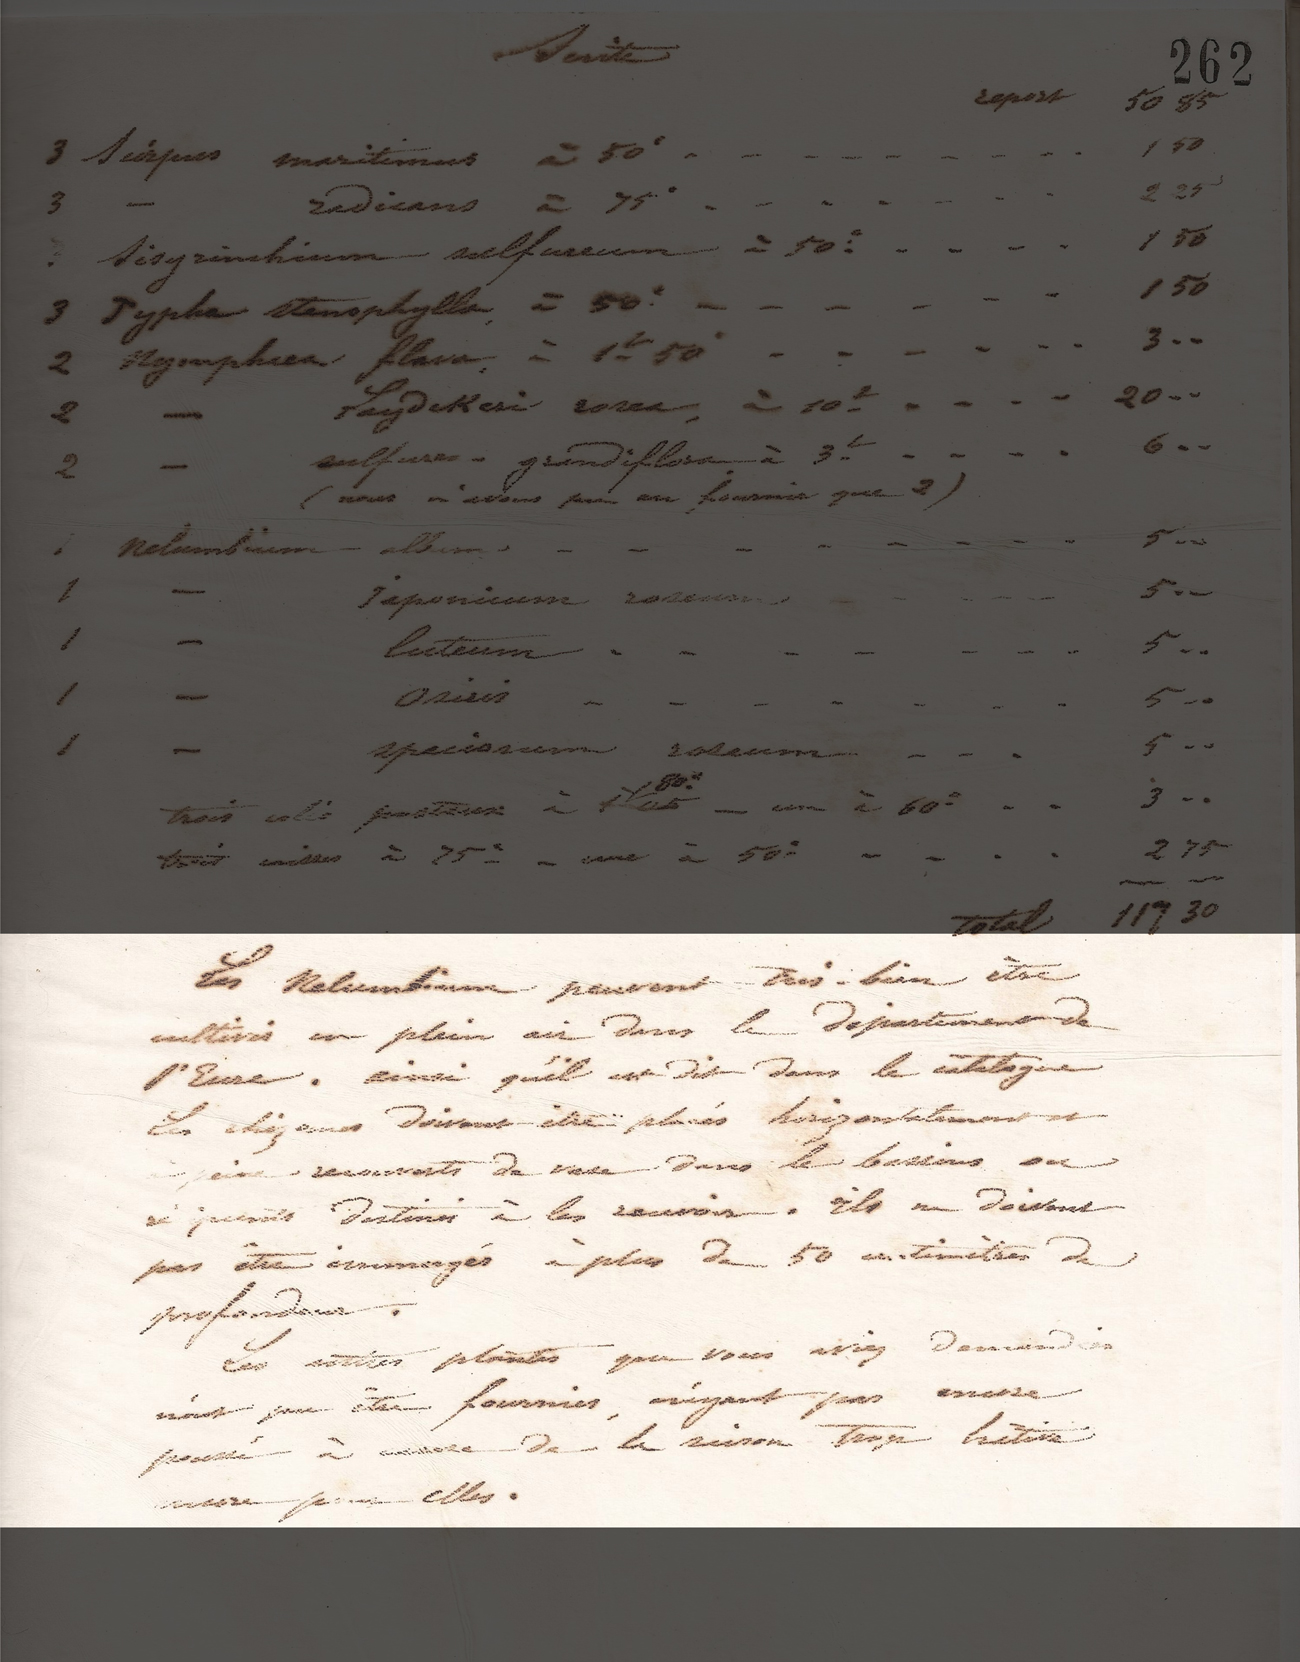 Suite
262
report 50 85
3 Scirpus maritimus à 50c 1 50
3 — radicans à 75c 2 25
Sisyrinchium sulfureum à 50c 1 50
3 Typha stenophylla, à 50c 1 50
2 Nymphea flava, à 1f 50c 3 --
2 — Laydekeri rosea, à 10f 20 --
2 — sulfurea - grandiflora, à 3f 6 --
(nous n'avons pu en fournir que 2)
1 Nelumbium album 5 --
1 — Japonicum roseum 5 --
1 — luteum 5 --
1 — Osiris 5 --
1 — speciosum roseum 5 --
80c
trois colis postaux à — un à 60c 3 --
trois caisses à 75c — une à 50c 2 75
total 117 30
Les Nelumbium peuvent très-bien être
cultivés en plein air dans le département de
l'Eure. ainsi qu'il est dit dans le catalogue
Les rhizomes doivent être placés horizontalement et
à peine recouverts de vase dans le bassins ou
récipients destinés à les recevoir. Ils ne doivent
pas être immergés à plus de 50 centimètres de
profondeur.
Les autres plantes que vous aviez demandées
n'ont pu être fournies, n'ayant pas encore
poussé à cause de la saison trop hâtive
encore pour elles.